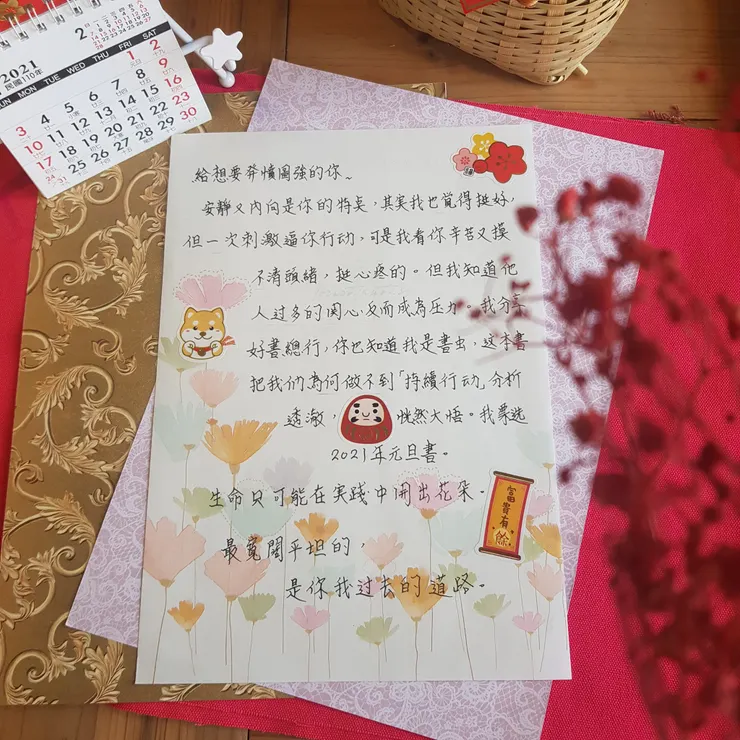 2021
民國110年
2
SUN MON TUE WED THU FRI SAT
1 2
3 4 5 6 7 8 9
10 11 12 13 14 15 16
17 18 19 20 21 22 23
25 26 27 28 29 30
給想要奔憤圖強的你~
安靜又內向是你的特点,其实我也覚得挺好,
但一次刺激逼你行动,可是我看你辛苦又摸
不清頭緒,挺心疼的。但我知道他
人过多的関心反而成為压力。我分享
好書總行,你也知道我是書虫,这本書
把我們為何做不到「持續行动」分析
透澈,恍然大悟。我票选
2021年元旦書。
生命只可能在实践中開出花朵。
最寬闊平坦的,
是你我过去的道路。
富貴有餘